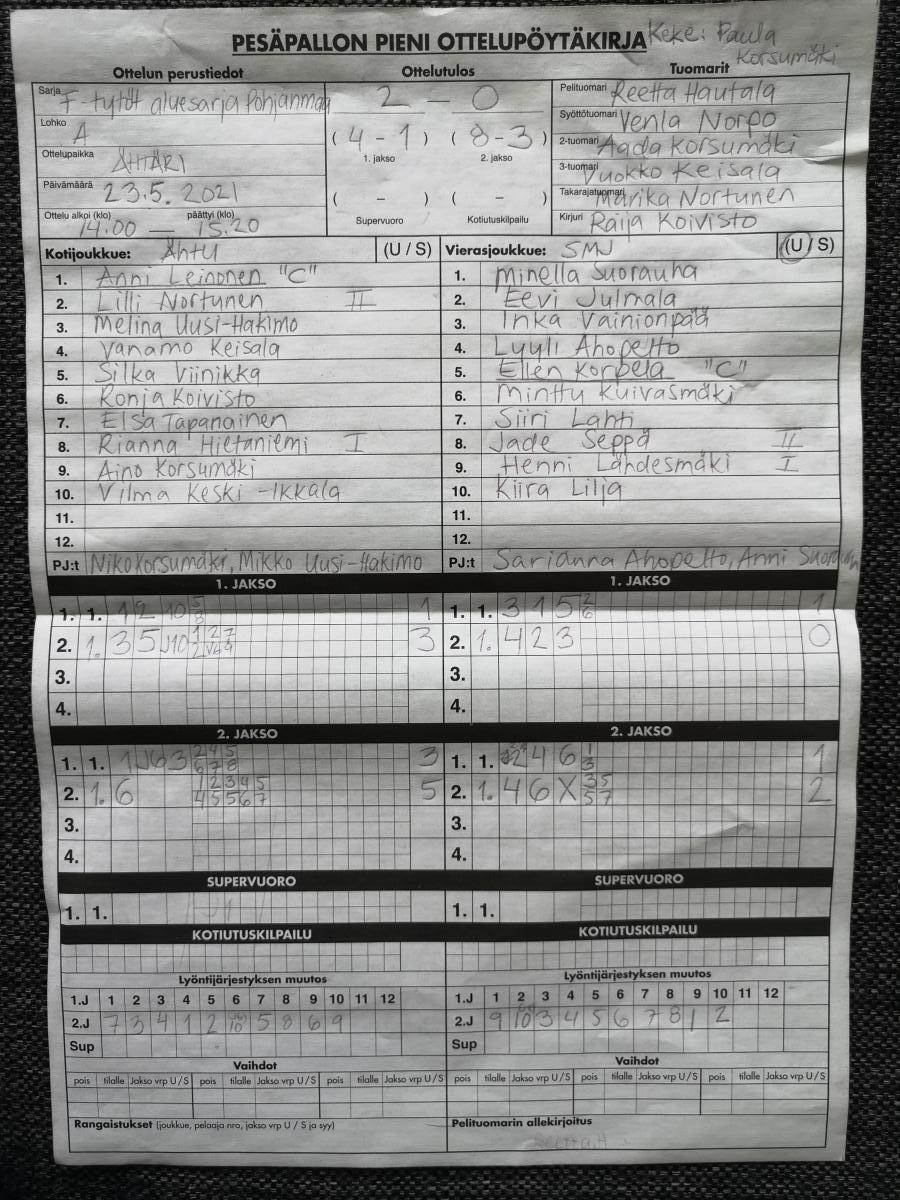 PESÄPALLON PIENI OTTELUPÖYTÄKIRJA
Keke: Paula Korsumäki
Ottelun perustiedot
Ottelutulos
Tuomarit
Sarja F-tytöt aluesarja Pohjanmaa
Lohko A
Ottelupaikka ÄHTÄRI
Päivämäärä 23.5. 2021
Ottelu alkoi (klo) päättyi (klo)
14.00 — 15.20
2 — 0
( 4 - 1 ) ( 8 - 3 )
1. jakso 2. jakso
( - ) ( - )
Supervuoro Kotiutuskilpailu
Pelituomari Reetta Hautala
Syöttötuomari Venla Norpo
2-tuomari Aada Korsumäki
3-tuomari Vuokko Keisala
Takarajatuomari Marika Nortunen
Kirjuri Raija Koivisto
Kotijoukkue: ÄhtU (U / S)
1. Anni Leinonen "C"
2. Lilli Nortunen II
3. Melina Uusi-Hakimo
4. Vanamo Keisala
5. Silka Viinikka
6. Ronja Koivisto
7. Elsa Tapanainen
8. Rianna Hietaniemi I
9. Aino Korsumäki
10. Vilma Keski-Ikkala
11.
12.
PJ:t Niko Korsumäki, Mikko Uusi-Hakimo
Vierasjoukkue: SMJ (U / S)
1. Minella Suorauha
2. Eevi Julmala
3. Inka Vainionpää
4. Lyyli Ahopelto
5. Ellen Korpela "C"
6. Minttu Kuivasmäki
7. Siiri Lahti
8. Jade Seppä II
9. Henni Lähdesmäki I
10. Kiira Lilja
11.
12.
PJ:t Sarianna Ahopelto, Anni
1. JAKSO
1. 1. 1 2 10 5 8 1
2. 1. 3 5 10 3
3.
4.
1. JAKSO
1. 1. 3 1 5 2 6 1
2. 1. 4 2 3 0
3.
4.
2. JAKSO
1. 1. 1 6 3 2 4 5 6 7 8 3
2. 1. 6 1 2 3 4 5 4 5 5 6 7 5
3.
4.
2. JAKSO
1. 1. 2 4 6 1 3 1
2. 1. 4 6 X 3 5 5 7 2
3.
4.
SUPERVUORO
1. 1.
SUPERVUORO
1. 1.
KOTIUTUSKILPAILU
KOTIUTUSKILPAILU
Lyöntijärjestyksen muutos
1.J 1 2 3 4 5 6 7 8 9 10 11 12
2.J 7 3 4 1 2 10 5 8 6 9
Sup
Lyöntijärjestyksen muutos
1.J 1 2 3 4 5 6 7 8 9 10 11 12
2.J 9 10 3 4 5 6 7 8 1 2
Sup
Vaihdot
pois tilalle Jakso vrp U / S pois tilalle Jakso vrp U / S pois tilalle Jakso vrp U / S
Vaihdot
pois tilalle Jakso vrp U / S pois tilalle Jakso vrp U / S pois tilalle Jakso vrp U / S
Rangaistukset (joukkue, pelaaja nro, jakso vrp U / S ja syy)
Pelituomarin allekirjoitus
Reetta.H